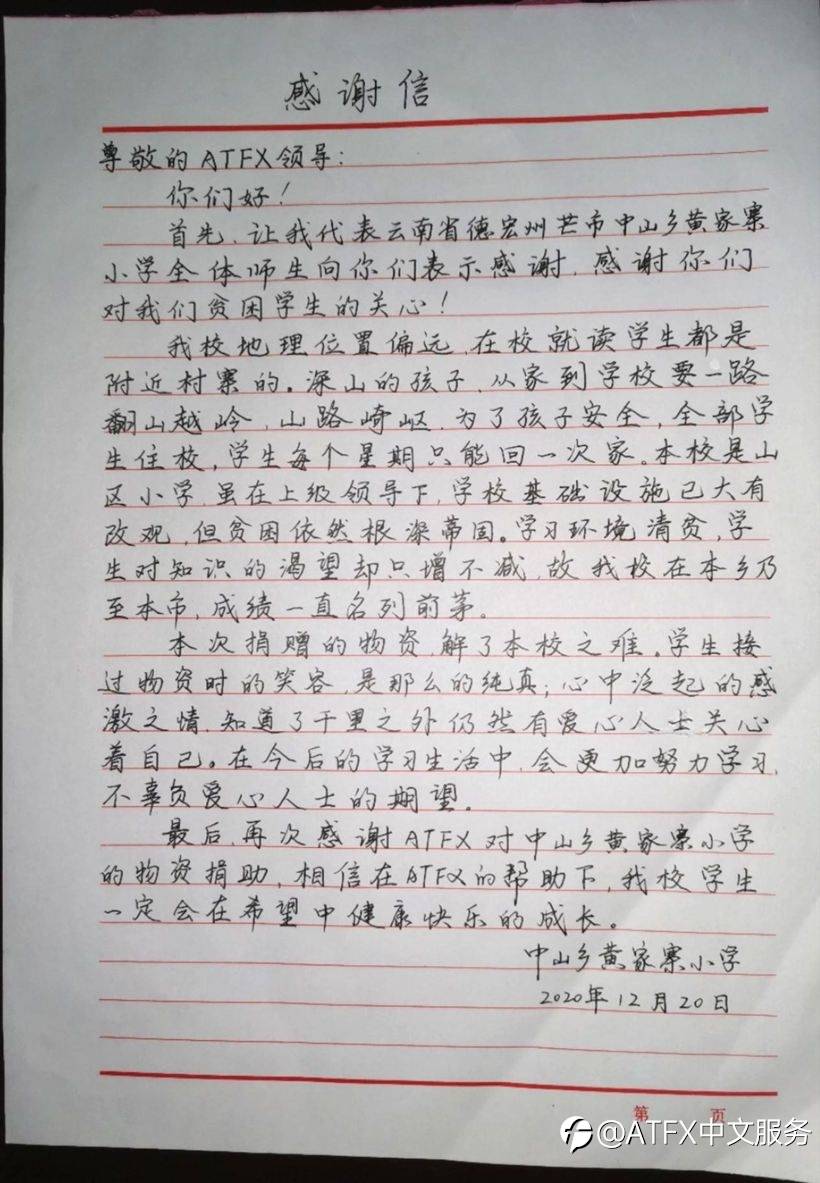 感谢信
尊敬的ATFX领导：
你们好！
首先，让我代表云南省德宏州芒市中山乡黄家寨
小学全体师生向你们表示感谢，感谢你们
对我们贫困学生的关心！
我校地理位置偏远，在校就读学生都是
附近村寨的。深山的孩子，从家到学校要一路
翻山越岭，山路崎岖，为了孩子安全，全部学
生住校，学生每个星期只能回一次家。本校是山
区小学，虽在上级领导下，学校基础设施已大有
改观，但贫困依然根深蒂固。学习环境清贫，学
生对知识的渴望却只增不减，故我校在本乡乃
至本市，成绩一直名列前茅。
本次捐赠的物资，解了本校之难。学生接
过物资时的笑容，是那么的纯真；心中泛起的感
激之情，知道了千里之外仍然有爱心人士关心
着自己。在今后的学习生活中，会更加努力学习，
不辜负爱心人士的期望。
最后，再次感谢ATFX对中山乡黄家寨小学
的物资捐助，相信在ATFX的帮助下，我校学生
一定会在希望中健康快乐的成长。
中山乡黄家寨小学
2020年12月20日
第 页
@ATFX中文服务